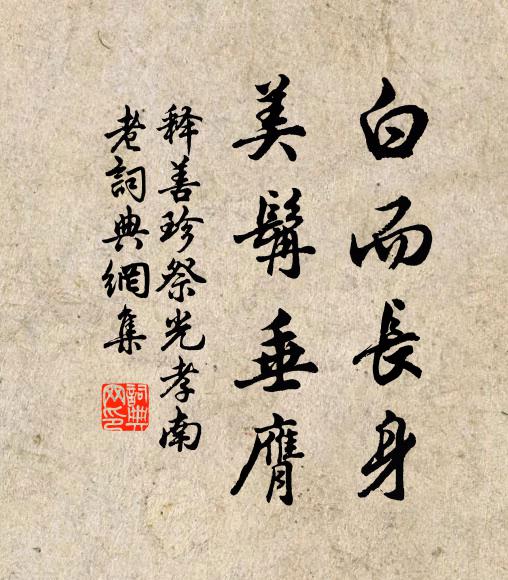 白而長身
美髯垂膺
释善珍祭光孝南
老詞典網集
詞典网印